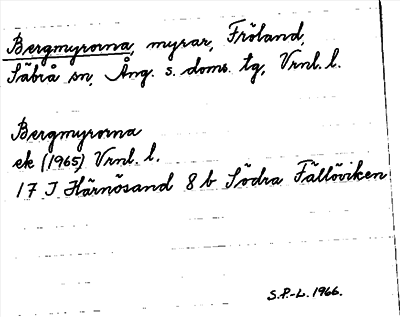 Bergmyrorna, myrar, Fröland,
Säbrå sn, Ång. s. doms. tg, Vrnl. l.
Bergmyrorna
ek (1965) Vrnl. l.
17 J Härnösand 8 b Södra Fällöviken
S.P.-L. 1966.